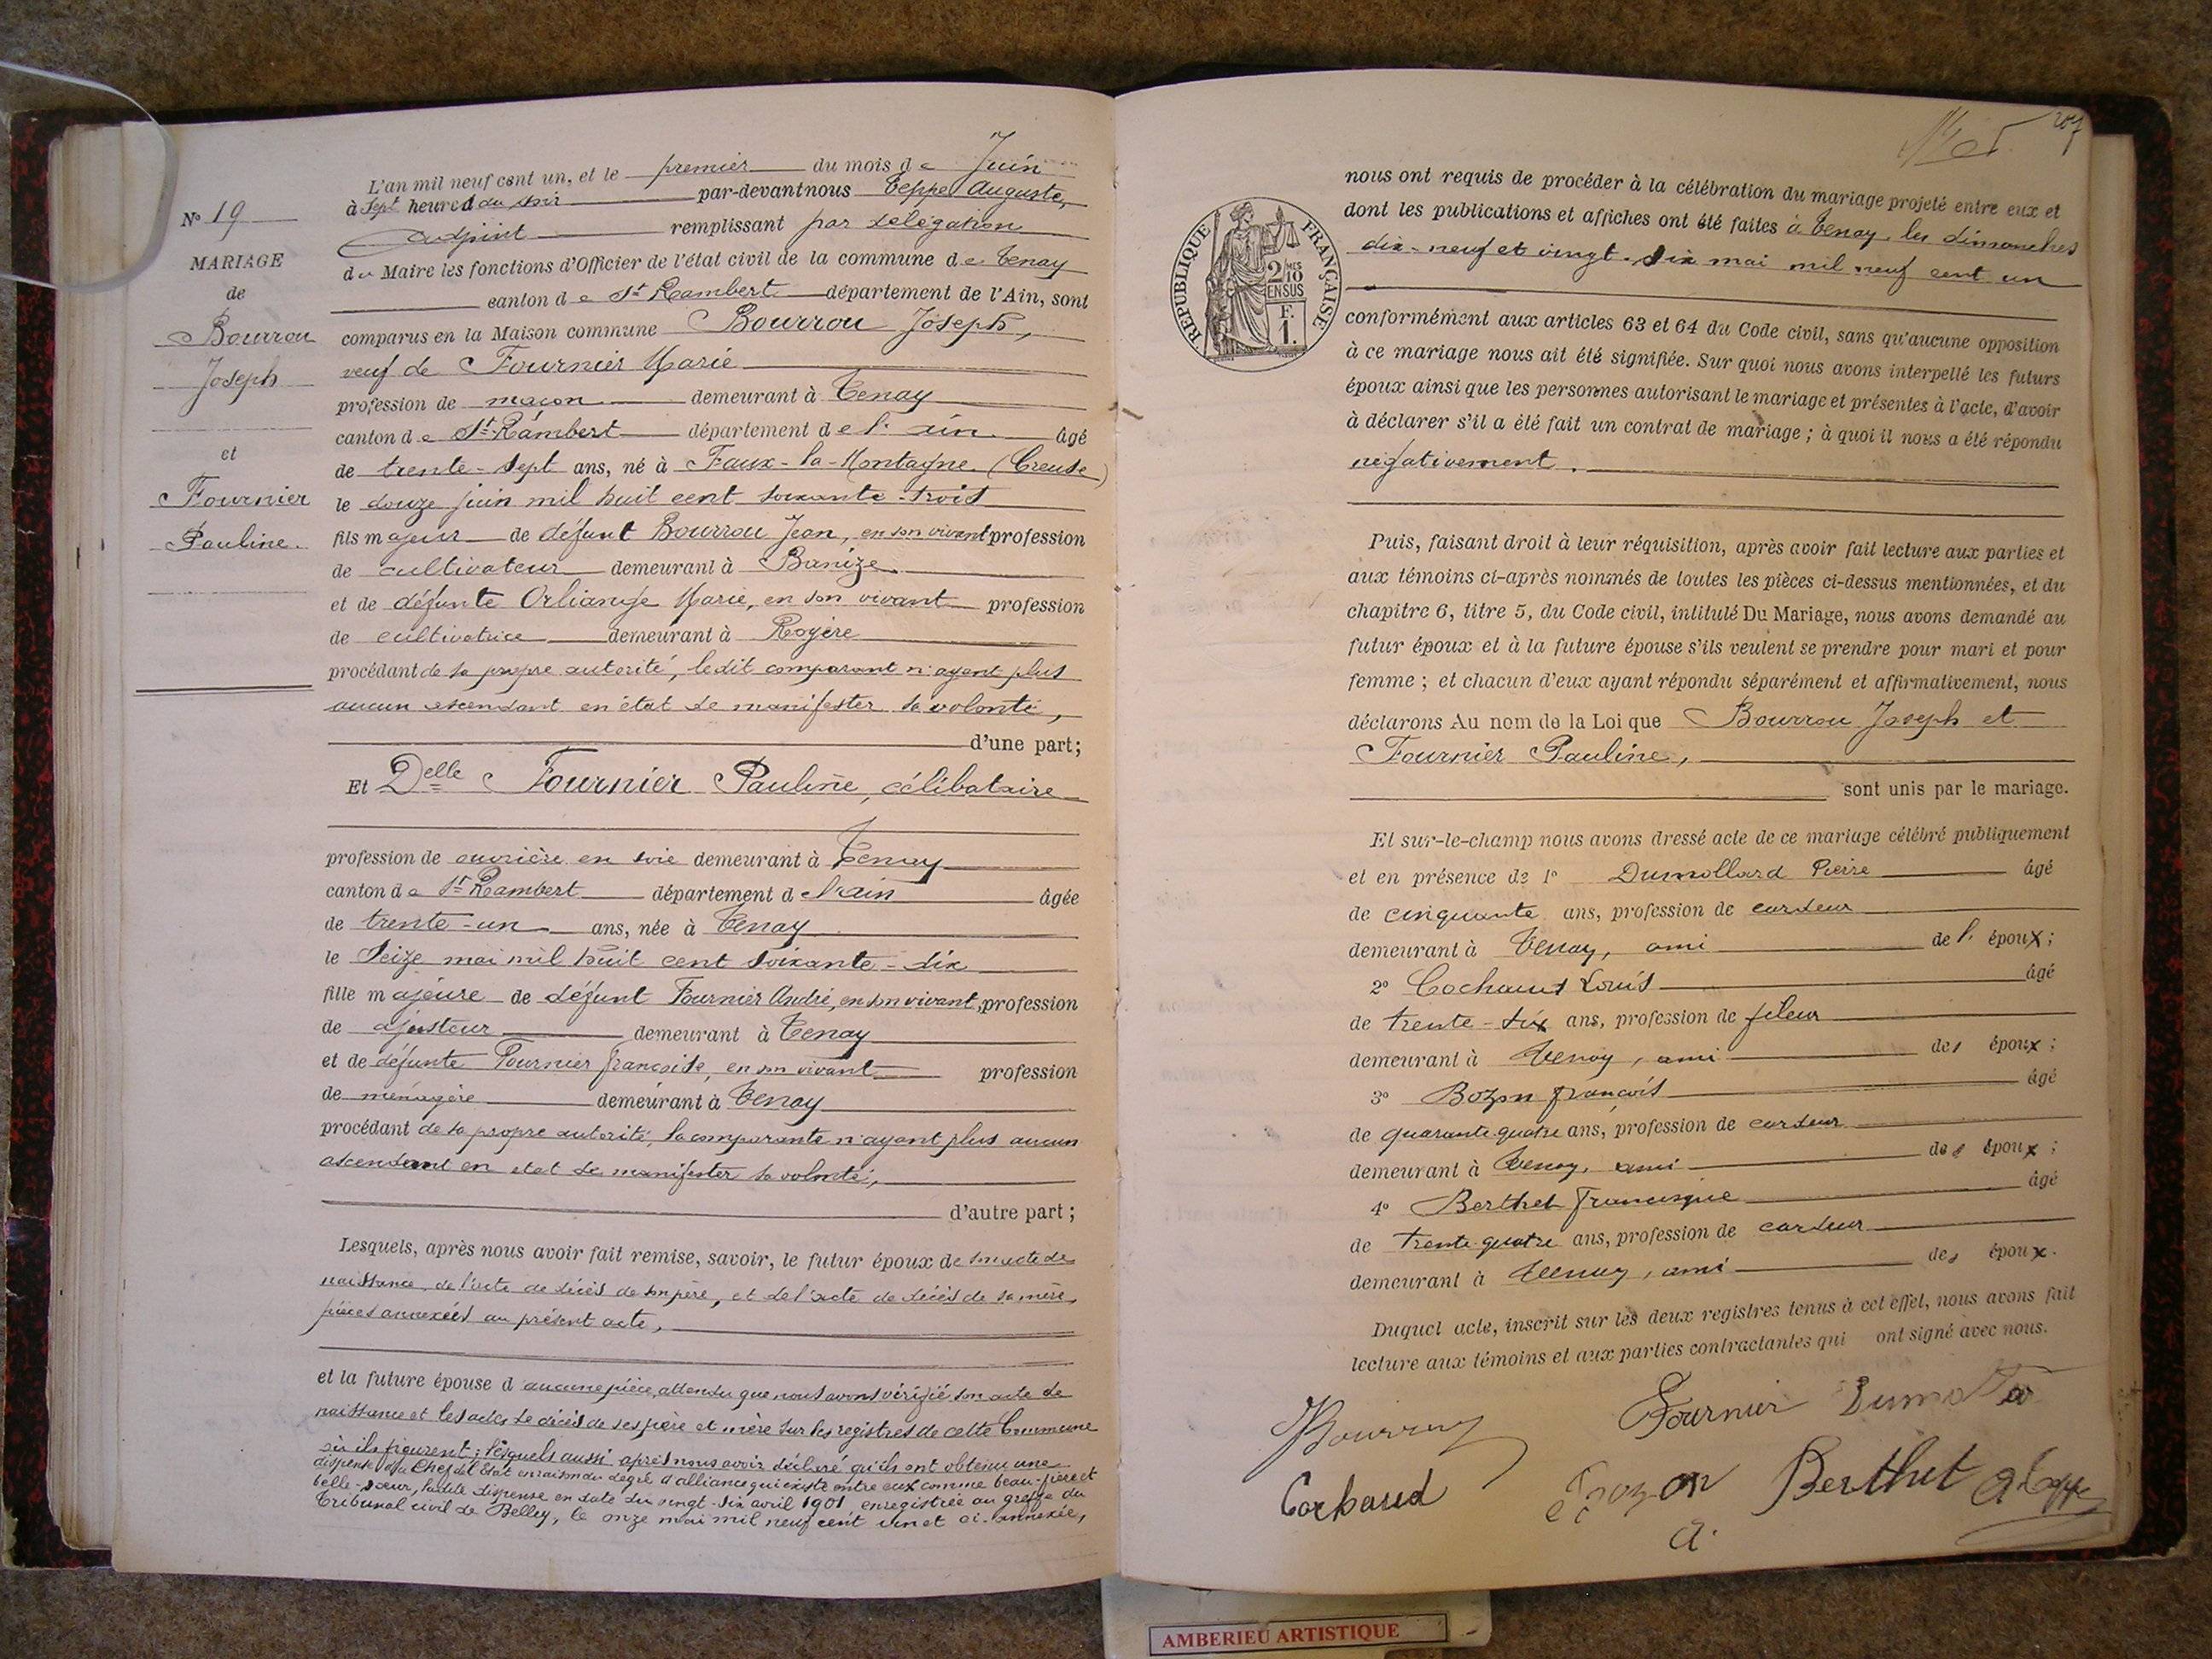 N° 19
MARIAGE
de
Bourrou
Joseph
et
Fournier
Pauline.
L'an mil neuf cent un, et le premier du mois de Juin
à sept heures du soir par-devant nous Teppe Auguste,
adjoint remplissant par délégation
du Maire les fonctions d'Officier de l'état civil de la commune de Tenay
canton de St Rambert département de l'Ain, sont
comparus en la Maison commune Bourrou Joseph,
veuf de Fournier Marie
profession de maçon demeurant à Tenay
canton de St Rambert département de l'ain âgé
de trente-sept ans, né à Faux-la-Montagne (Creuse)
le douze juin mil huit cent soixante-trois
fils majeur de défunt Bourrou Jean, en son vivant profession
de cultivateur demeurant à Banize
et de défunte Orliange Marie, en son vivant profession
de cultivatrice demeurant à Royère
procédant de sa propre autorité, ledit comparant n'ayant plus
aucun ascendant en état de manifester sa volonté,
d'une part;
Et Delle Fournier Pauline, célibataire
profession de ouvrière en soie demeurant à Tenay
canton de St Rambert département de l'ain âgée
de trente-un ans, née à Tenay
le seize mai mil huit cent soixante-dix
fille majeure de défunt Fournier André, en son vivant, profession
de ajusteur demeurant à Tenay
et de défunte Fournier françoise, en son vivant profession
de ménagère demeurant à Tenay
procédant de sa propre autorité, la comparante n'ayant plus aucun
ascendant en état de manifester sa volonté,
d'autre part;
Lesquels, après nous avoir fait remise, savoir, le futur époux de son acte de
naissance, de l'acte de décès de son père, et de l'acte de décès de sa mère,
pièces annexées au présent acte,
et la future épouse d'aucune pièce, attendu que nous avons vérifié son acte de
naissance et les actes de décès de ses père et mère sur les registres de cette Commune
où ils figurent; lesquels aussi après nous avoir déclaré qu'ils ont obtenu une
dispense du Chef de l'Etat en raison du degré d'alliance qui existe entre eux comme beau-frère et
belle-sœur, ladite dispense en date du vingt-six avril 1901 enregistrée au greffe du
Tribunal civil de Belley, le onze mai mil neuf cent un et ci-annexée,
207
RÉPUBLIQUE FRANÇAISE
2/10
MES
EN SUS
F.
1.
nous ont requis de procéder à la célébration du mariage projeté entre eux et
dont les publications et affiches ont été faites à Tenay, les dimanches
dix-neuf et vingt-six mai mil neuf cent un
conformément aux articles 63 et 64 du Code civil, sans qu'aucune opposition
à ce mariage nous ait été signifiée. Sur quoi nous avons interpellé les futurs
époux ainsi que les personnes autorisant le mariage et présentes à l'acte, d'avoir
à déclarer s'il a été fait un contrat de mariage; à quoi il nous a été répondu
négativement.
Puis, faisant droit à leur réquisition, après avoir fait lecture aux parties et
aux témoins ci-après nommés de toutes les pièces ci-dessus mentionnées, et du
chapitre 6, titre 5, du Code civil, intitulé Du Mariage, nous avons demandé au
futur époux et à la future épouse s'ils veulent se prendre pour mari et pour
femme; et chacun d'eux ayant répondu séparément et affirmativement, nous
déclarons Au nom de la Loi que Bourrou Joseph et
Fournier Pauline,
sont unis par le mariage.
Et sur-le-champ nous avons dressé acte de ce mariage célébré publiquement
et en présence de 1° Dumollard Pierre âgé
de cinquante ans, profession de cardeur
demeurant à Tenay, ami de l'époux;
2° Louis âgé
de trente-six ans, profession de fileur
demeurant à Tenay, ami des époux;
3° Bozon françois âgé
de quarante-quatre ans, profession de cardeur
demeurant à Tenay, ami des époux;
4° Berthet Francisque âgé
de trente-quatre ans, profession de cardeur
demeurant à Tenay, ami des époux.
Duquel acte, inscrit sur les deux registres tenus à cet effet, nous avons fait
lecture aux témoins et aux parties contractantes qui ont signé avec nous.
Fournier
Berthet
AMBERIEU ARTISTIQUE